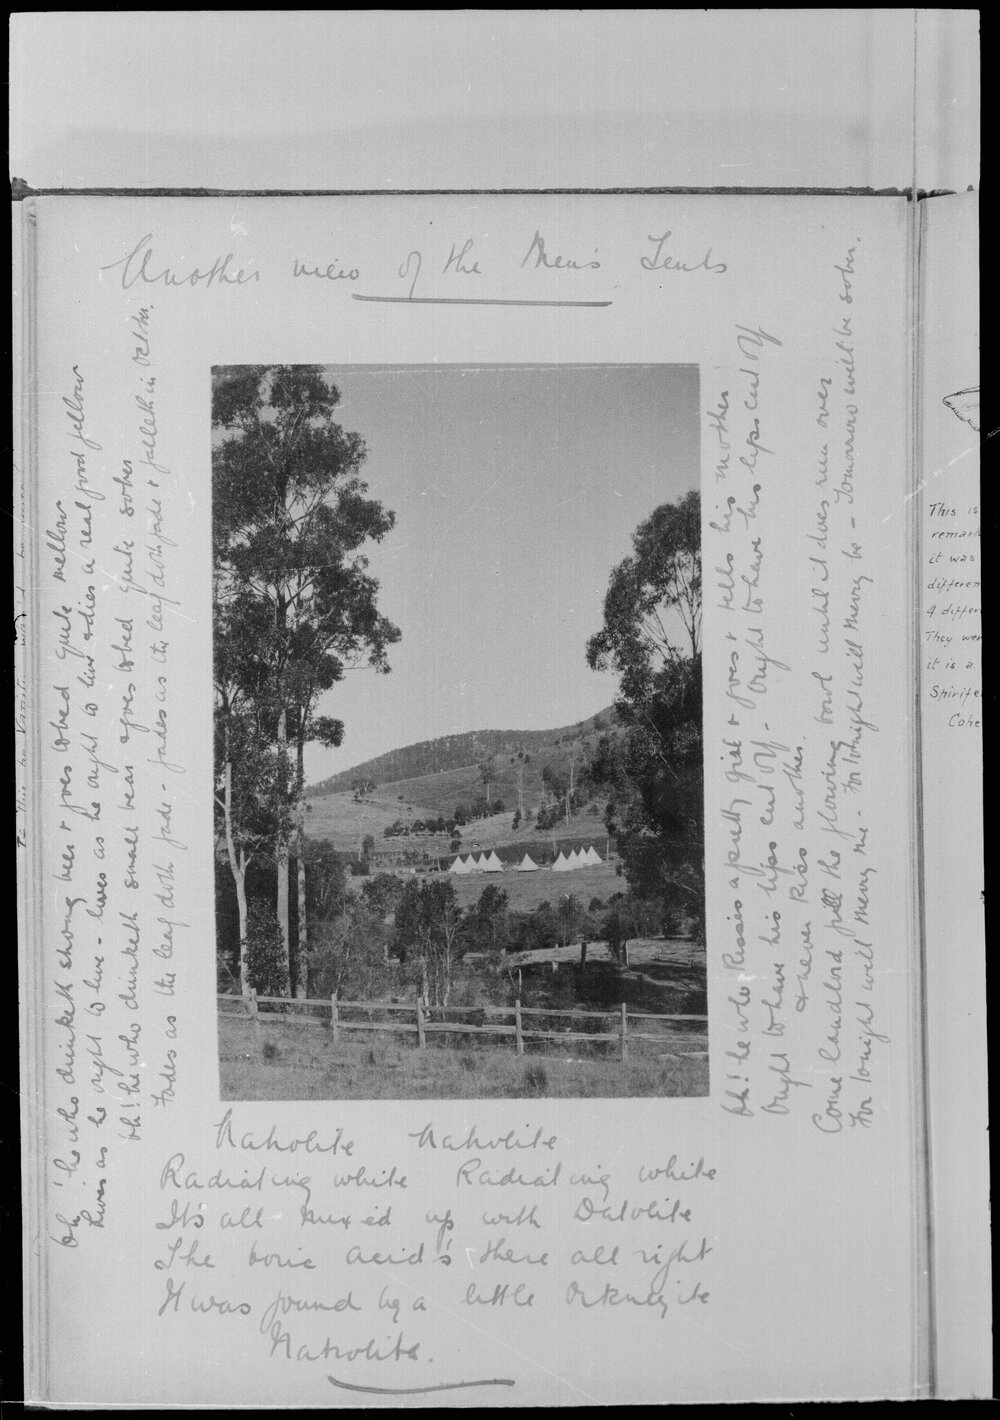 Another view of the Men's Tents
Oh! he who drinketh strong beer & goes to bed quite mellow
Lives as he ought to live - lives as he ought to live & dies a real good fellow
Oh! he who drinketh small bear & goes to bed quite sober
Fades as the leaf doth fade - fades as the leaf doth fade & falleth in October.
Oh! he who kisses a pretty girl & goes & tells his mother
Ought to have his lips cut off - ought to have his lips cut off
& never kiss another.
Come landlord fill the flowing bowl until it does run over
For tonight will merry me - For tonight will merry be - Tomorrow will be sober.
Natrolite Natrolite
Radiating white Radiating white
It's all mixed up with Datolite
The boric acid's there all right
It was found by a little Orkneyite
Natrolite.
This is
remark
it was
differen
4 differ
They wer
it is a
Spirife